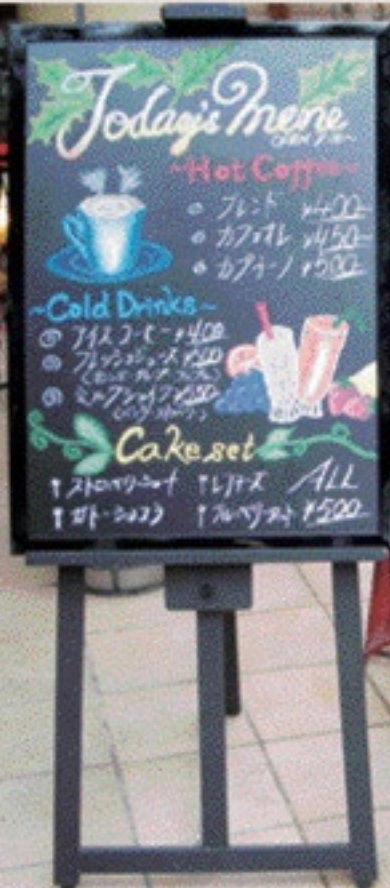 Today's Menu
~Hot Coffee~
ブレンド ¥400
カフェオレ ¥450
カプチーノ ¥500
~Cold Drinks~
アイスコーヒー ¥400
フレッシュジュース ¥500
ミルクシェイク ¥550
Cake set
ストロベリーショート レアチーズ ALL
ガトーショコラ ブルーベリータルト ¥500